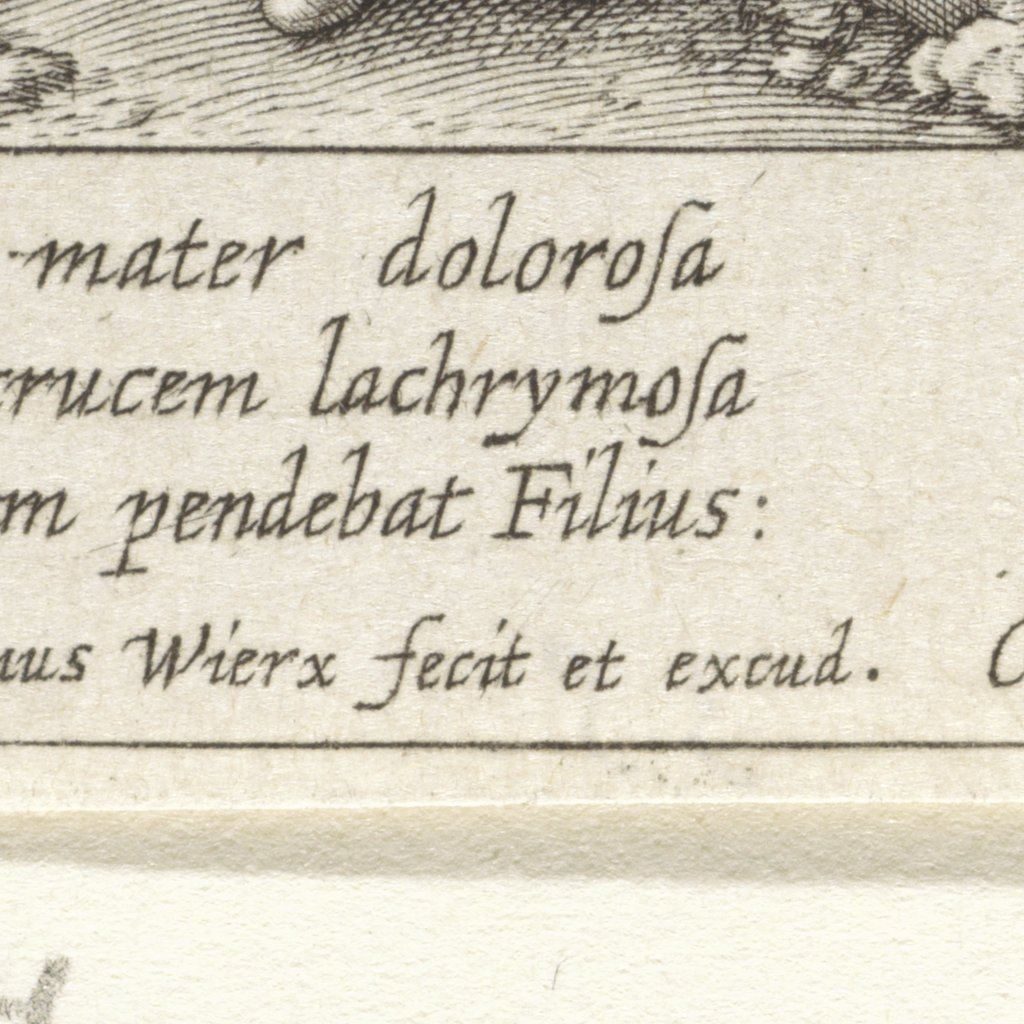 mater doloroſa
crucem lachrymoſa
pendebat Filius:
Wierx fecit et excud.